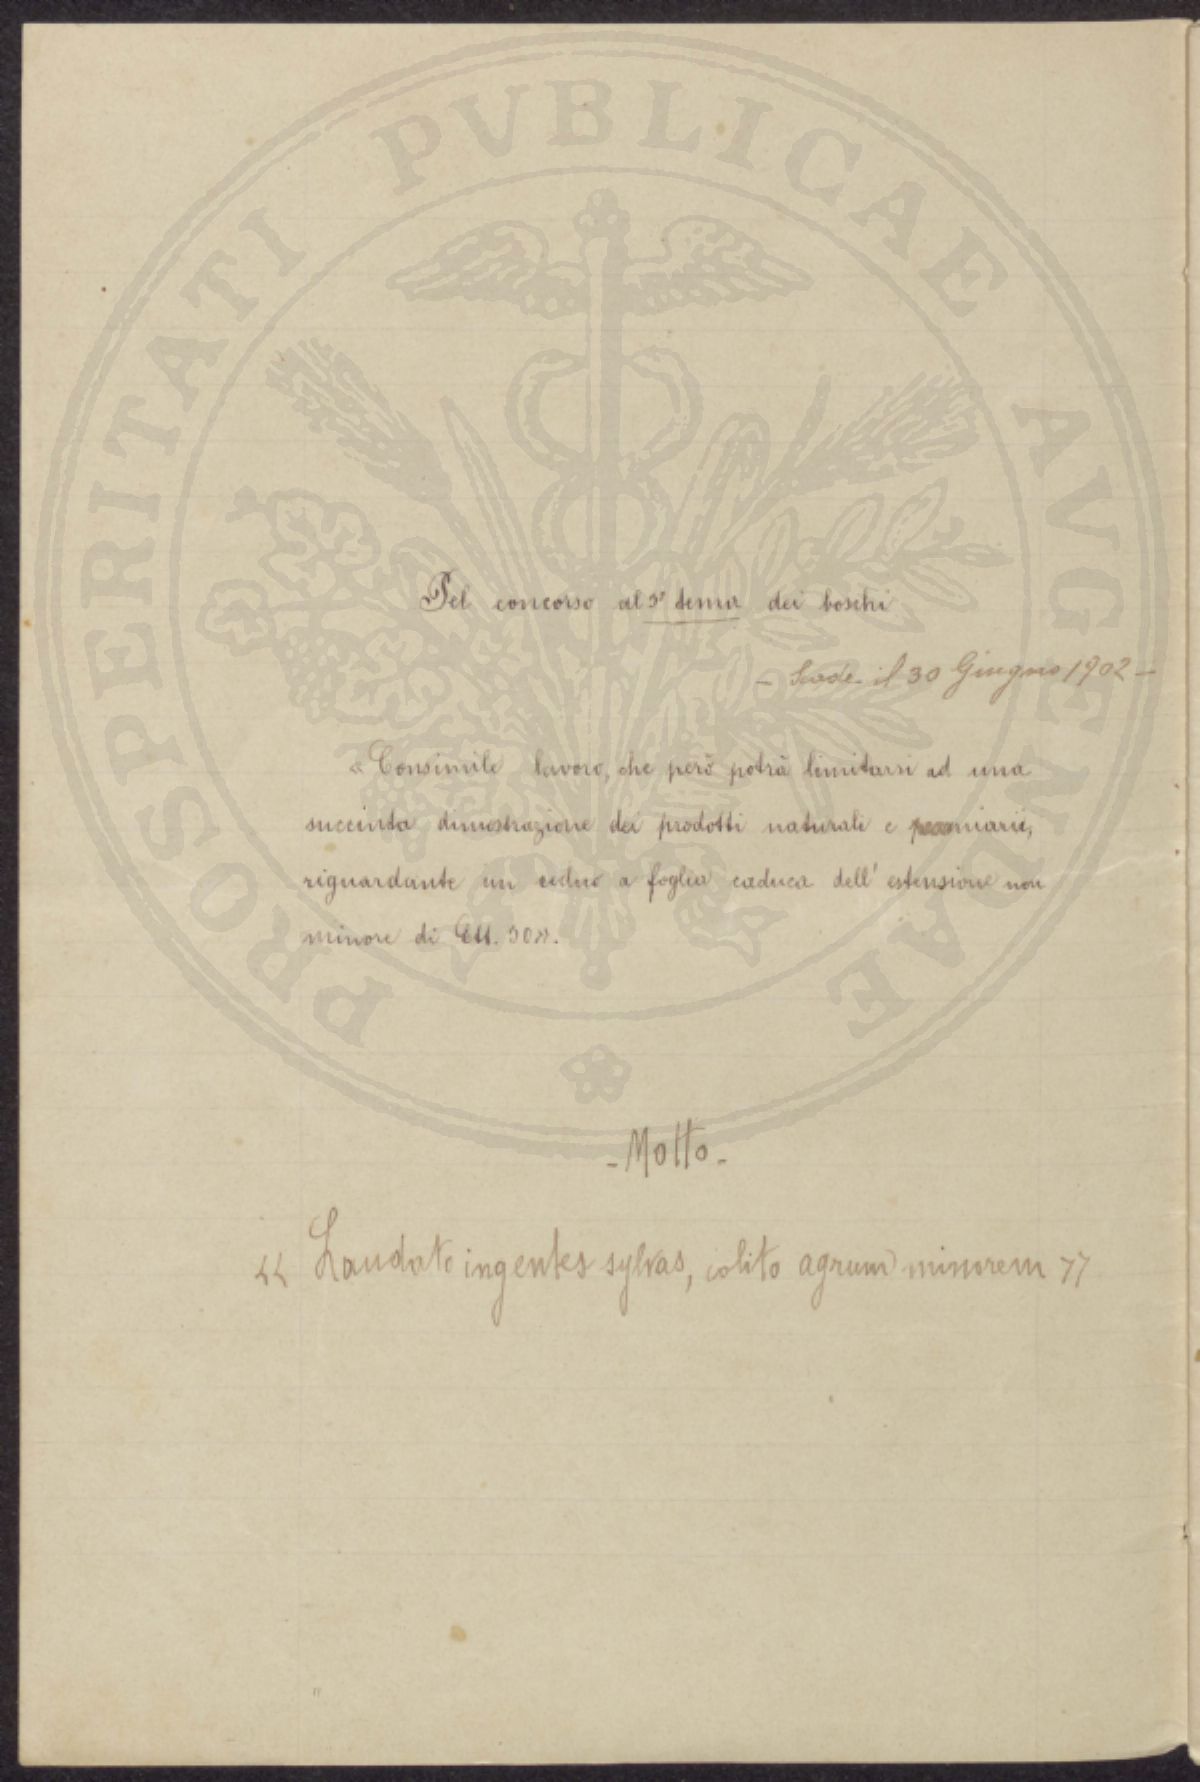 PROSPERITATI PVBLICAE AVGENDAE
Pel concorso al 3° tema dei boschi
- Scade il 30 Giugno 1902 -
« Consimile lavoro, che però potrà limitarsi ad una
succinta dimostrazione dei prodotti naturali e pecuniarii,
riguardante un ceduo a foglia caduca dell' estensione non
minore di Ett. 30».
- Motto -
« Laudato ingentes sylvas, colito agrum minorem »